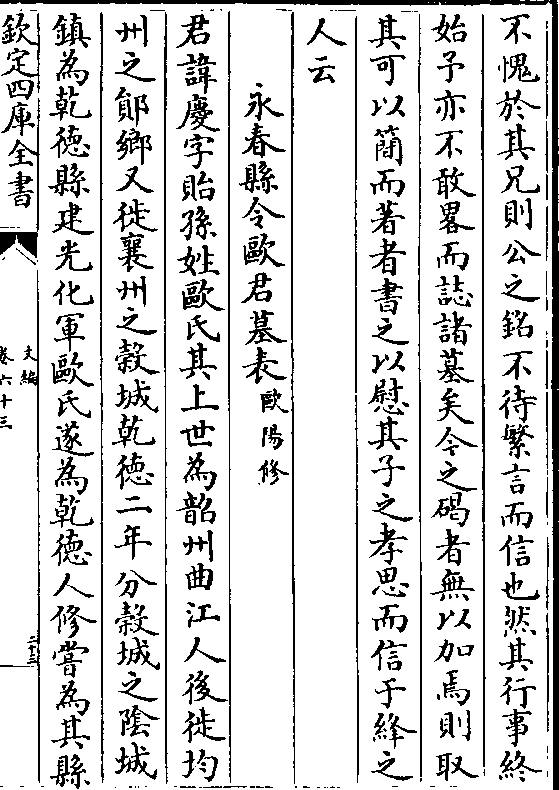 不愧於其兄則公之銘不待繁言而信也然其行事終
始予亦不敢畧而誌諸墓矣今之碣者無以加焉則取
其可以簡而著者書之以慰其子之孝思而信于絳之
人云
永春縣令歐君墓表歐陽修
君諱慶字貽孫姓歐氏其上世為韶州曲江人後徙均
州之鄖鄉又徙襄州之穀城乾徳二年分穀城之陰城
鎮為乾徳縣建光化軍歐氏遂為乾徳人修嘗為其縣
欽定四庫全書
文編
卷六十三